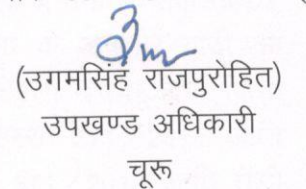 (उगमसिंह राजपुरोहित)
उपखण्ड अधिकारी
चूरू